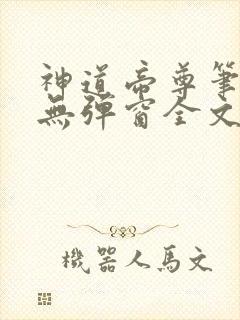 神道帝尊筆
無彈窗全文
機器人馬文